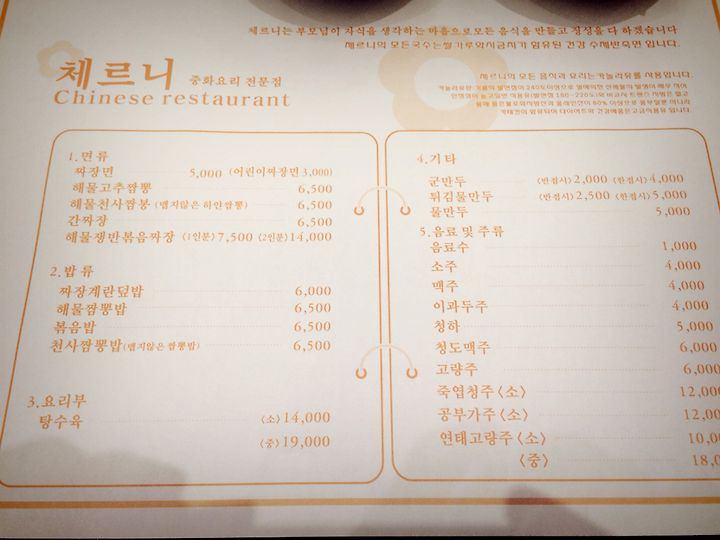 체르니는 부모님이 자식을 생각하는 마음으로 모든 음식을 만들고 정성을 다 하겠습니다
체르니의 모든국수는쌀가루와시금치가 함유된 건강 수제반죽면 입니다.
체르니 중화요리 전문점
Chinese restaurant
체르니의 모든 음식과 요리는카놀라유를 사용입니다.
1.면류
짜장면 5,000 (어린이짜장면 3,000)
해물고추짬뽕 6,500
해물천사짬뽕 (맵지않은 하얀짬뽕) 6,500
간짜장 6,500
해물쟁반볶음짜장 (1인분)7,500 (2인분)14,000
2.밥류
짜장계란덮밥 6,000
해물짬뽕밥 6,500
볶음밥 6,500
천사짬뽕밥(맵지않은 짬뽕밥) 6,500
3.요리부
탕수육 <소>14,000
<중>19,000
4.기타
군만두 <반접시>2,000 <한접시>4,000
튀김물만두 <반접시>2,500 <한접시>5,000
물만두 5,000
5.음료 및 주류
음료수 1,000
소주 4,000
맥주 4,000
이과두주 4,000
청하 5,000
청도맥주 6,000
고량주 6,000
죽엽청주<소> 12,000
공부가주<소> 12,00
연태고량주<소> 10,0
<중> 18,0